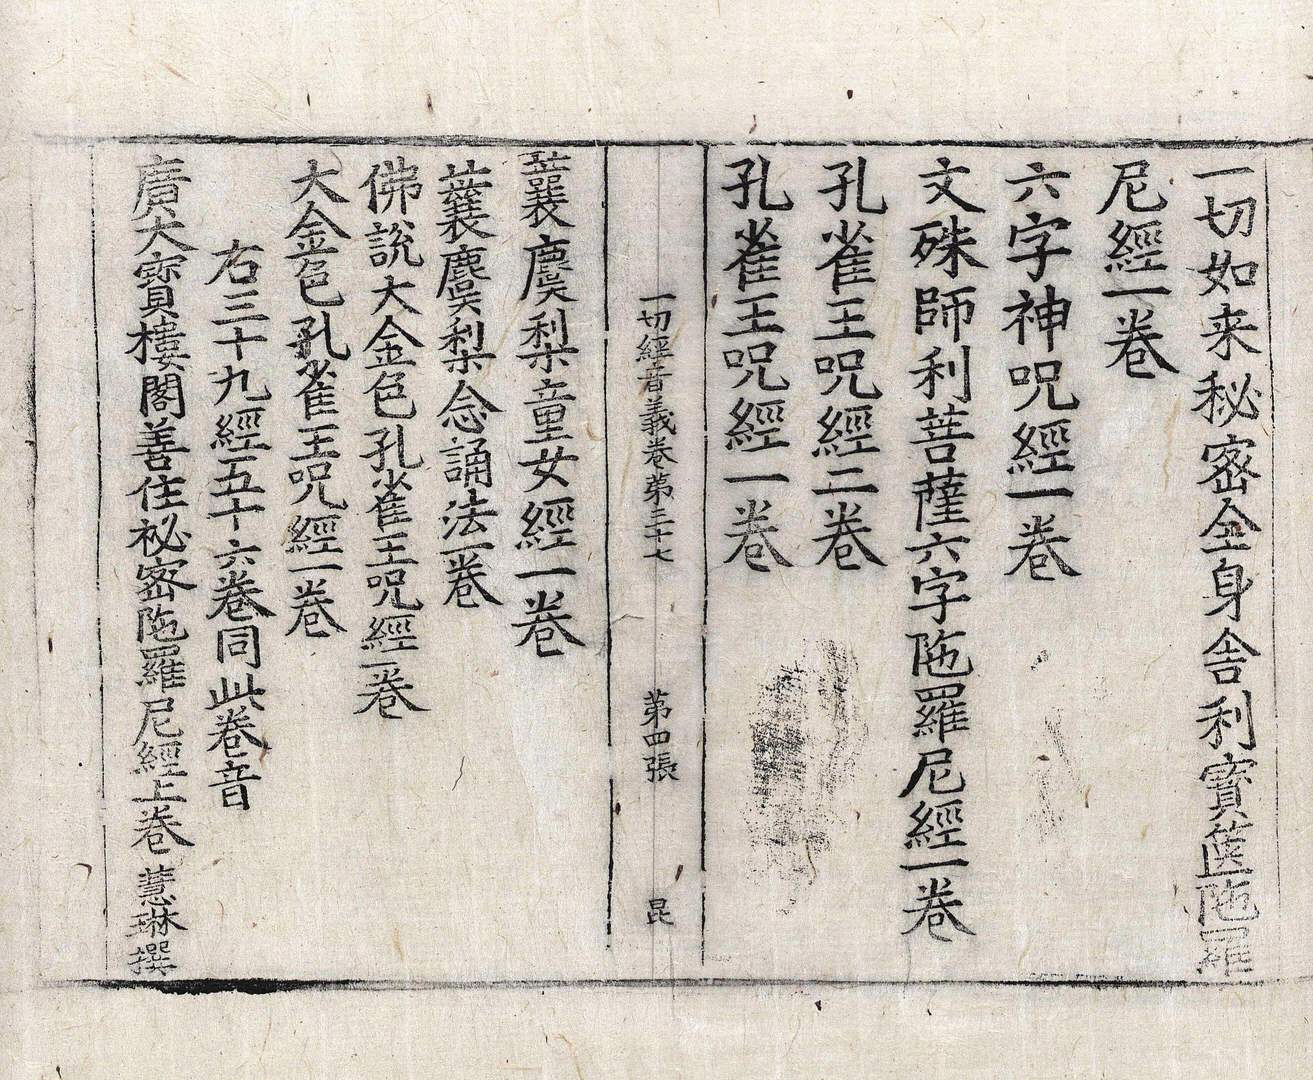 一切如来秘密全身舎利寳篋陁羅
尼經一卷
六字神呪經一卷
文殊師利菩薩六字陁羅尼經一卷
孔雀王呪經二卷
孔雀王呪經一卷
一切經音義卷第三十七 第四張 昆
蘘麌梨童女經一卷
蘘麌梨念誦法一卷
佛說大金色孔雀王呪經一卷
大金色孔雀王呪經一卷
右三十九經五十六卷同此卷音
廣大寶樓閣善住秘密陁羅尼經上卷 慧琳撰